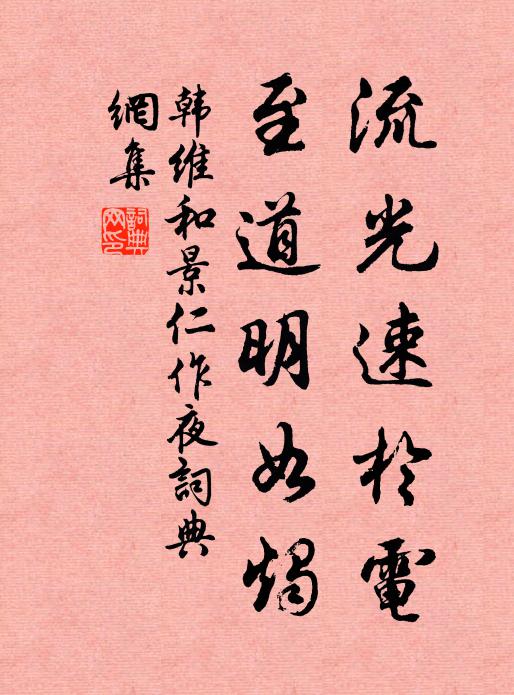 流光速於電
至道明如燭
韩維和景仁作夜詞典
網集
詞典
网印